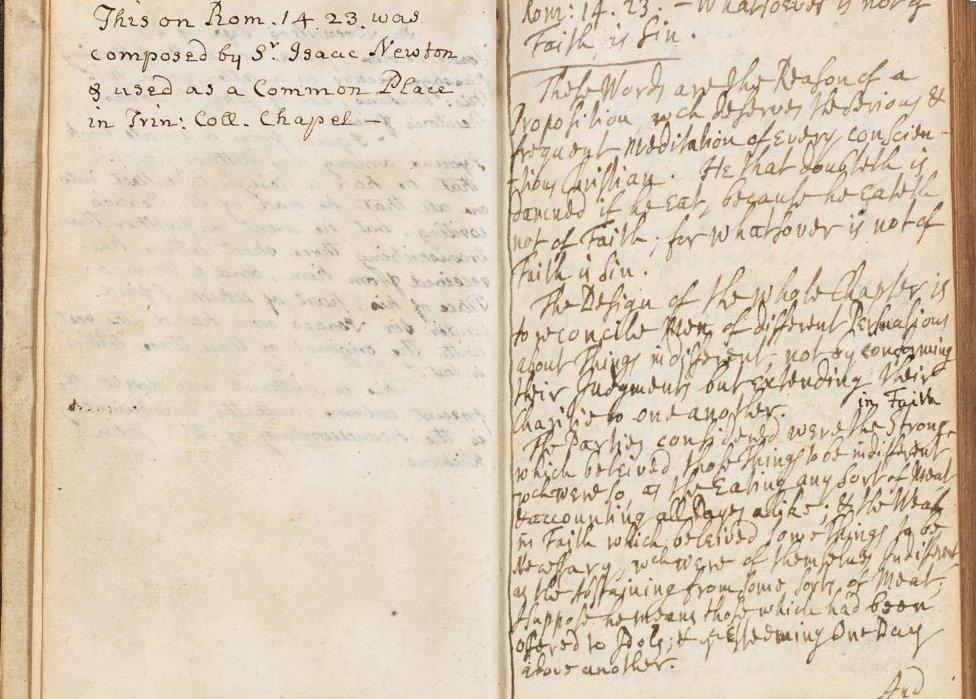 This on Rom. 14. 23. was
composed by Sr. Isaac Newton
& used as a Common Place
in Trin: Coll. Chapel —
Rom: 14. 23. — Whatsoever is not of
Faith, is Sin.
These Words are the Reason of a
Proposition, wch deserves the serious &
frequent Meditation of Every conscien-
tious Christian. He that doubteth is
damned if he Eat, because he Eateth
not of Faith; for whatsover is not of
Faith is Sin.
The Design of the whole Chapter is
to reconcile Men of different Persuasions
about Things indifferent, not by conforming
their Judgments but Extending their
Charitie to one another.
in Faith
The Parties considered were the Strong
which beleived those things to be indifferent
wch were so, as the Eating any Sort of Meat
& accounting all Dayes alike; & the Weak
in Faith which beleived some things to be
Necessary, wch were of themselves Indifferent
as the Abstaining from some sorts of Meat,
suppose he means those which had been
offered to Idols; & Esteeming One Day
above another.
And